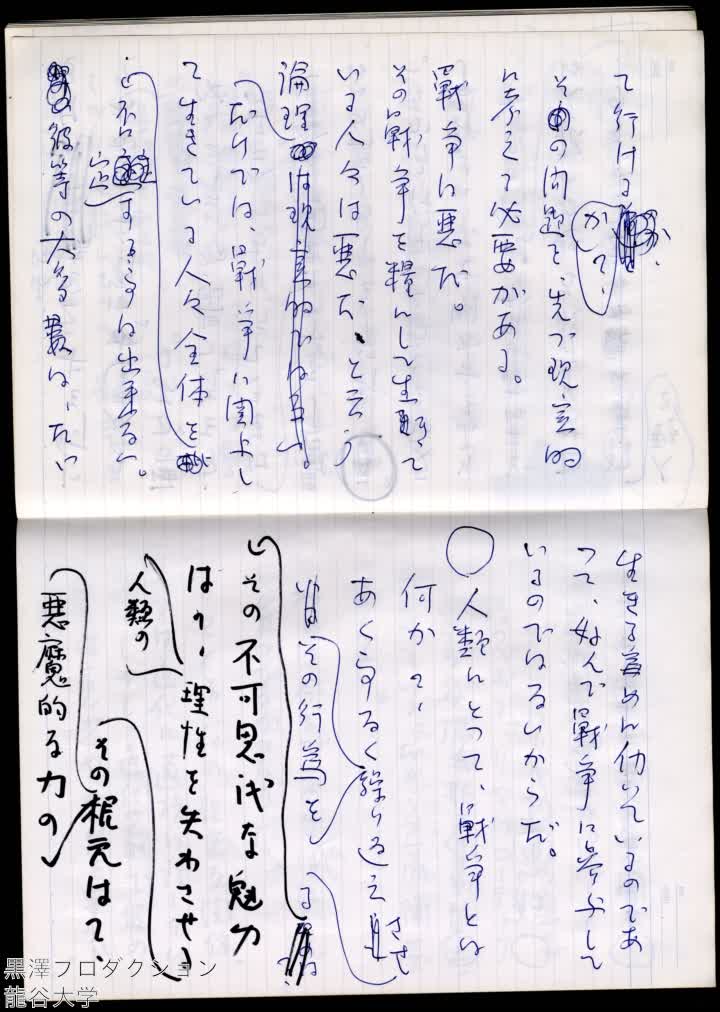 て行けるか、
かて、
その問題を、先づ現実的
に考えて必要がある。
戦争は悪だ。
その戦争を糧として生きて
いる人々は悪だ、と云う
論理は現実的ではない。
だけでは、戦争に関与し
て生きている人々全体を
否定する事は出来ない。
彼等の大多数は、たゞ
生きる為めに働いているのであ
って、好んで戦争に参与して
いるのではないからだ。
人類にとって、戦争とは
何か?、
あく事なく繰り返えさせ
その行為を
その不可思議な魅力
は?、理性を失わさせる
人類の
その根元は?、
悪魔的な力の
黒澤プロダクション
龍谷大学